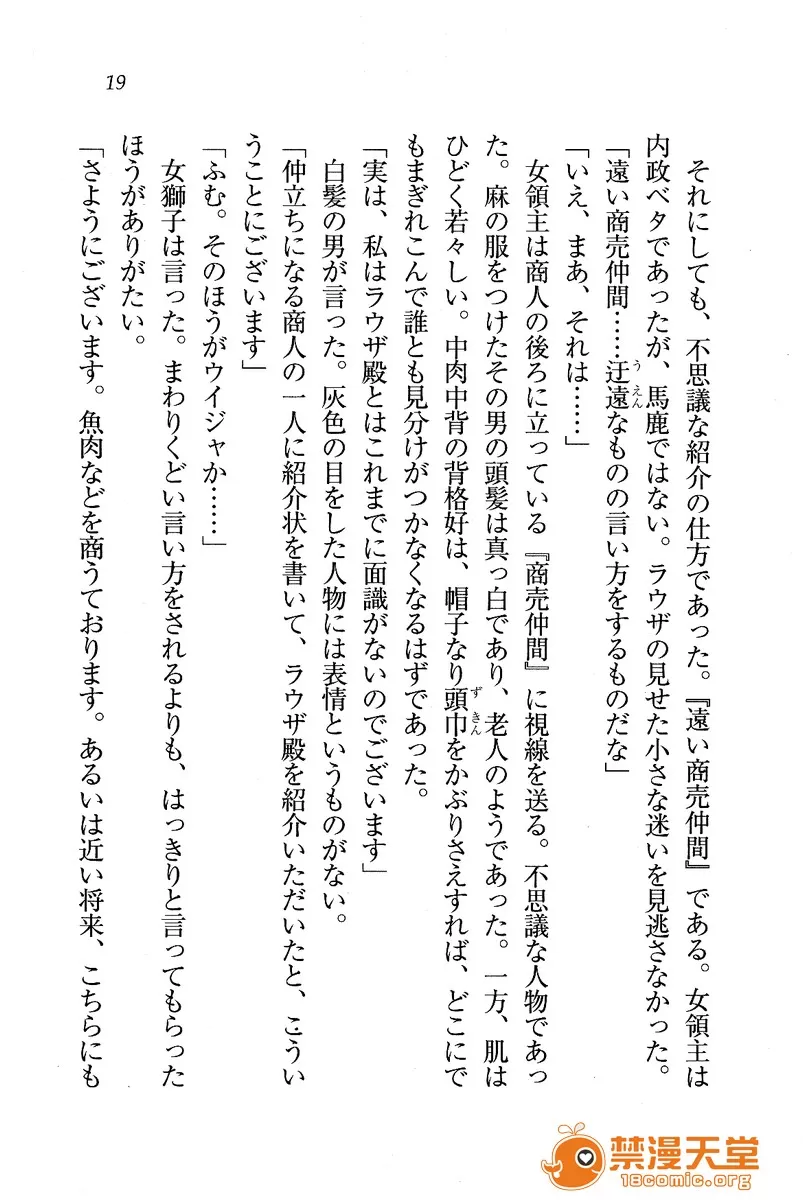 19
それにしても、不思議な紹介の仕方であった。『遠い商売仲間』である。女領主は
内政ベタであったが、馬鹿ではない。ラウザの見せた小さな迷いを見逃さなかった。
「遠い商売仲間……迂遠なものの言い方をするものだな」
うえん
「いえ、まあ、それは……」
女領主は商人の後ろに立っている『商売仲間』に視線を送る。不思議な人物であっ
た。麻の服をつけたその男の頭髪は真っ白であり、老人のようであった。一方、肌は
ひどく若々しい。中肉中背の背格好は、帽子なり頭巾をかぶりさえすれば、どこにで
ずきん
もまぎれこんで誰とも見分けがつかなくなるはずであった。
「実は、私はラウザ殿とはこれまでに面識がないのでございます」
白髪の男が言った。灰色の目をした人物には表情というものがない。
「仲立ちになる商人の一人に紹介状を書いて、ラウザ殿を紹介いただいたと、こうい
うことにございます」
「ふむ。そのほうがウイジャか……」
女獅子は言った。まわりくどい言い方をされるよりも、はっきりと言ってもらった
ほうがありがたい。
「さようにございます。魚肉などを商うております。あるいは近い将来、こちらにも
禁漫天堂
18comic.org